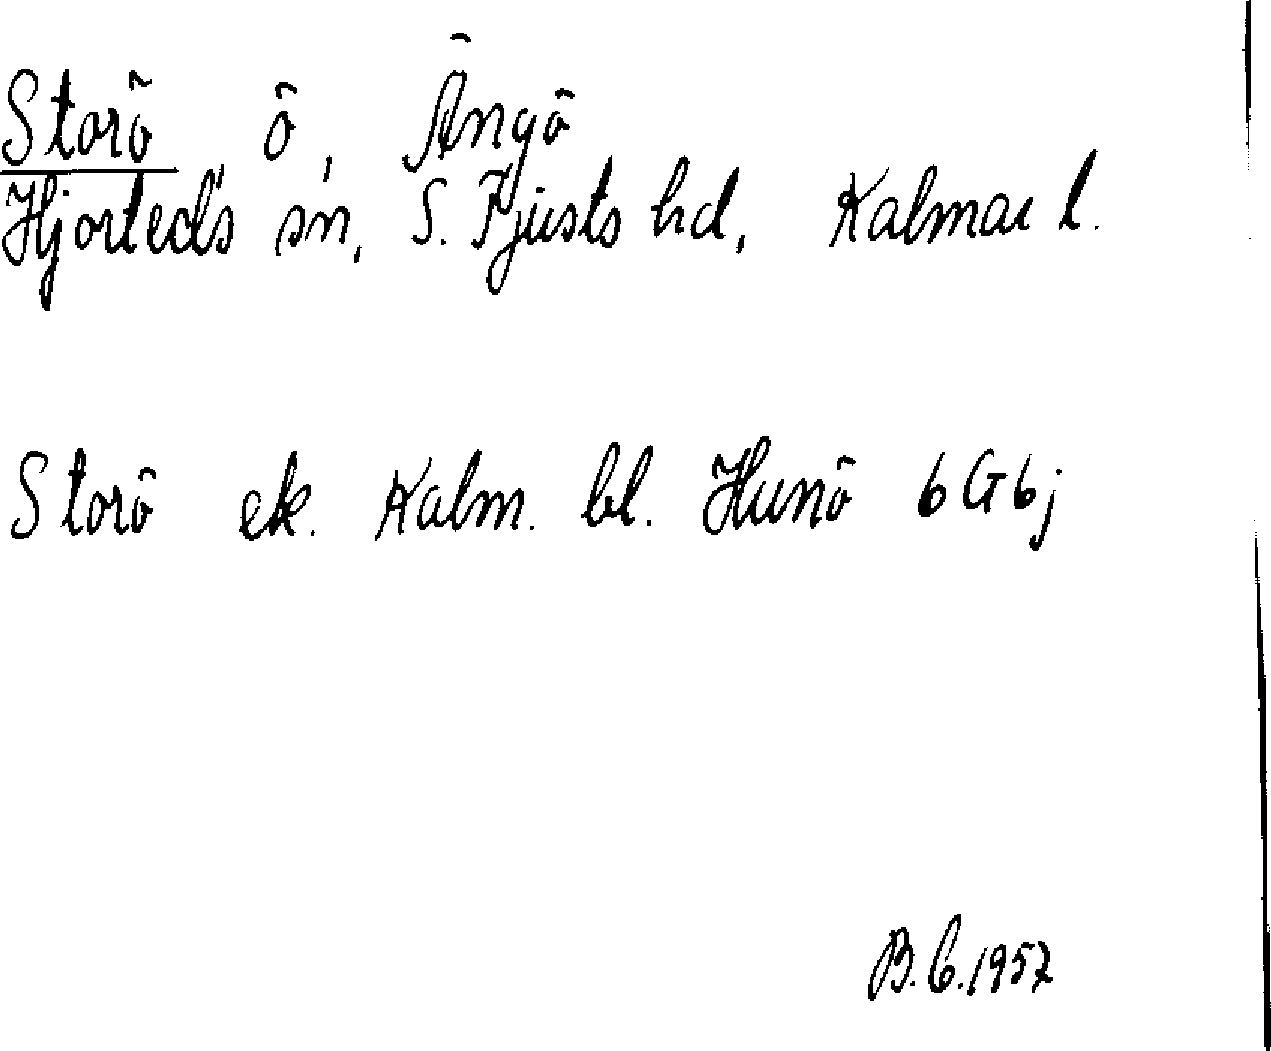 Storö ö, Ängö
Hjorteds sn, S. Tjusts hd, Kalmar l.
Storö ek. Kalm. bl. Hunö 6G6j
B.C.1957